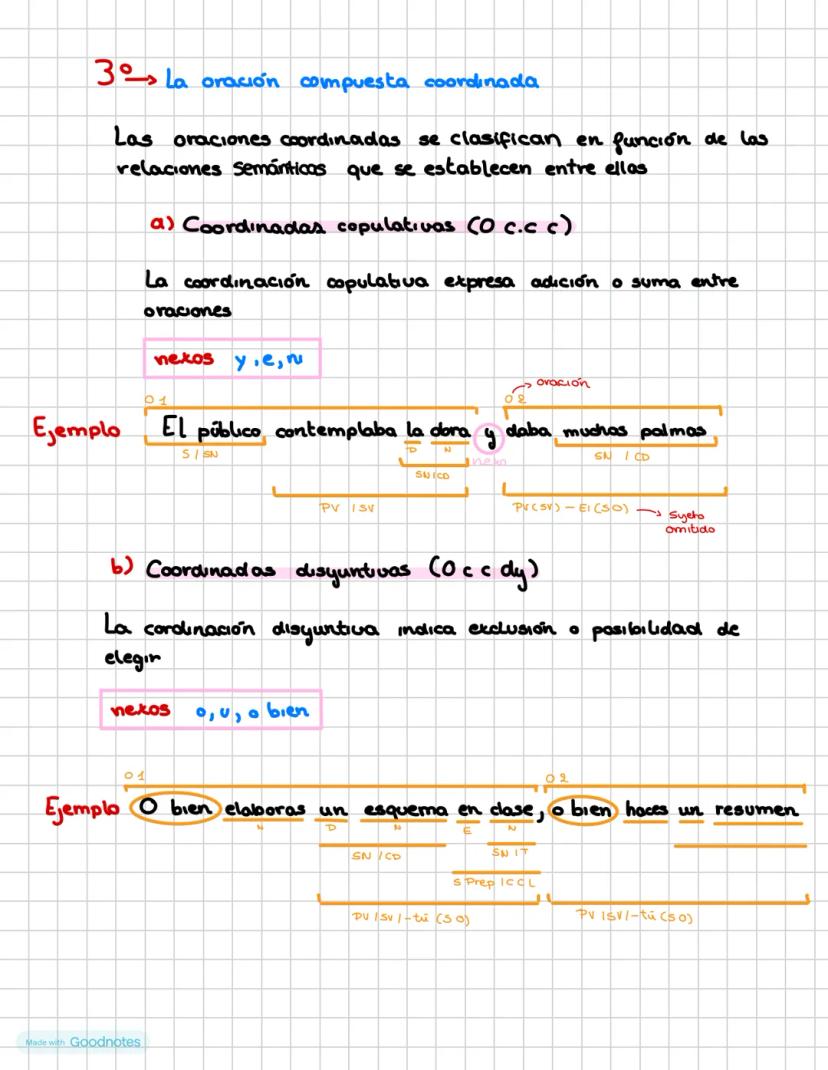 3º→ La oración compuesta coordinada
Las oraciones coordinadas se clasifican en función de las
relaciones semánticas que se establecen entre ellas
a) Coordinadas copulativas (O c.c c)
La coordinación copulativa expresa adición o suma entre
oraciones
nexos y, e, ni
→ oración
O 1 O 2
Ejemplo El público contemplaba la obra y daba muchas palmas
S / SN D N nexo SN / CD
SN / CD
PV / SV PV (SV) - El (S O) → Sujeto
omitido
b) Coordinadas disyuntivas (O c c dy)
La cordinación disyuntiva indica exclusión o posibilidad de
elegir
nexos o, u, o bien
O 1 O 2
Ejemplo O bien elaboras un esquema en clase, o bien haces un resumen
N D N E N
SN / CD SN / T
S Prep / C C L
PV / SV / - tú (S O) PV / SV / - tú (S O)
Made with Goodnotes